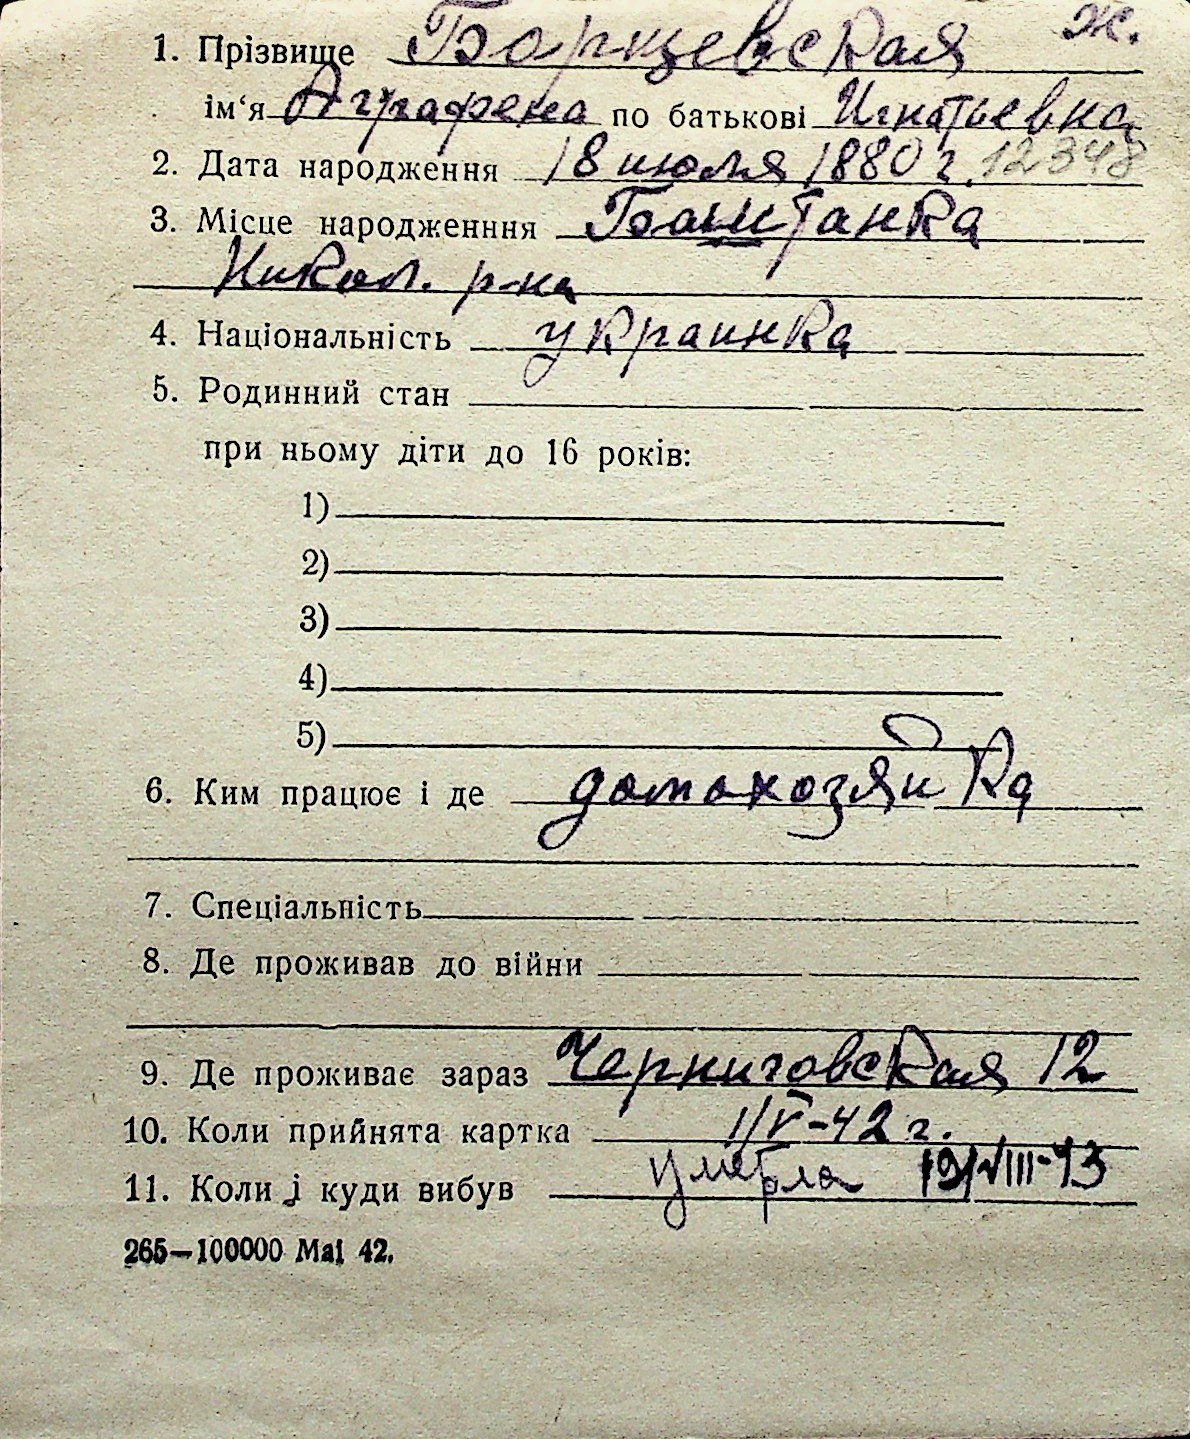 1. Прізвище Борщевская ж.
ім‘я Аграфена по батькові Игнатьевна
2. Дата народження 18 июля 1880 г. 12348
3. Місце народженння Баштанка
Никол. р-на
4. Національність украинка
5. Родинний стан
при ньому діти до 16 років:
1)
2)
3)
4)
5)
6. Ким працює і де домохозяйка
7. Спеціальність
8. Де проживав до війни
9. Де проживає зараз Черниговская 12
10. Коли прийнята картка 1/V-42 г.
11. Коли і куди вибув умерла 19/VIII-43
265—100000 Маі 42.